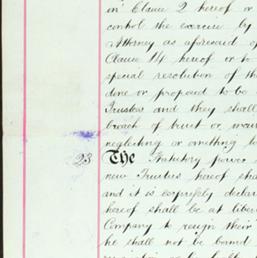 in Clause 2 hereof or
control the exercise by
Attorney as aforesaid of
Clause 14 hereof or to
special resolution of th
done or proposed to be
Trustees and they shall
breach of trust or
neglecting or omitting to
23 The Statutory power
new Trustees hereof sha
and it is expressly decla
hereof shall be at liber
Company to resign their
he shall not be bound